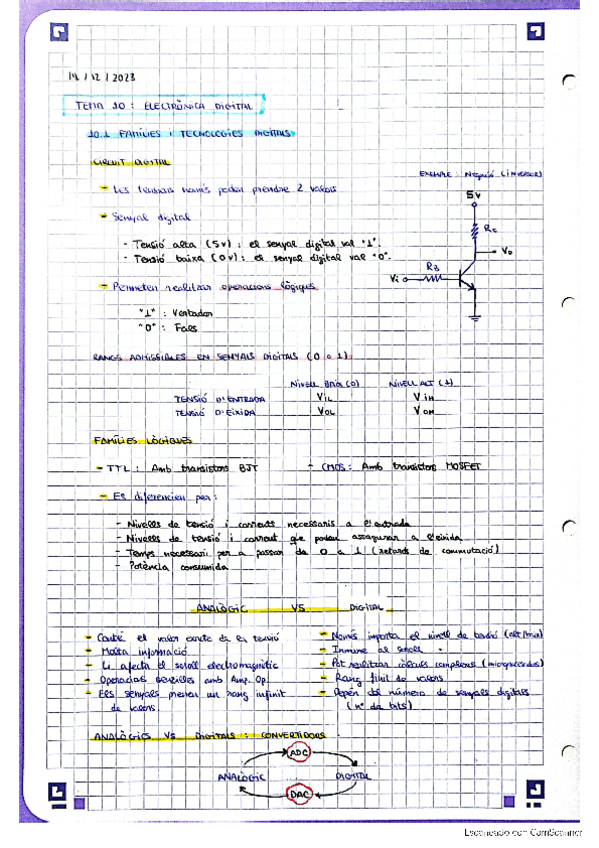 14 / 12 / 2023
TEMA 10 : ELECTRÒNICA DIGITAL
10.1 FAMÍLIES I TECNOLOGIES DIGITALS
CIRCUIT DIGITAL
EXEMPLE : Negació (INVERSOR)
- Les tensions només poden prendre 2 valors
5V
- Senyal digital
Rc
- Tensió alta (5V) : el senyal digital val "1".
Vo
- Tensió baixa (0V) : el senyal digital val "0".
RB
Vi
- Permeten realitzar operacions lògiques
"1" : Vertader
"0" : Fals
RANGS ADMISSIBLES EN SENYALS DIGITALS (0 o 1)
NIVELL BAIX (0) NIVELL ALT (1)
TENSIÓ D'ENTRADA VIL VIH
TENSIÓ D'EIXIDA VOL VOH
FAMÍLIES LÒGIQUES
- TTL : Amb transistors BJT - CMOS : Amb transistors MOSFET
- Es diferencien per :
- Nivells de tensió i corrents necessaris a l'entrada
- Nivells de tensió i corrent que poden assegurar a l'eixida
- Temps necessari per a passar de 0 a 1 (retards de commutació)
- Potència consumida
ANALÒGIC VS DIGITAL
- Conté el valor exacte de la tensió
- Només importa el nivell de tensió (alt/baix)
- Molta informació
- Immune al soroll
- Li afecta el soroll electromagnètic
- Pot realitzar càlculs complexos
- Operacions senzilles amb Amp. Op
- Rang finit de valors
- Els senyals prenen un rang infinit de valors.
- Depén del número de senyals digitals
(nº de bits)
ANALÒGICS VS DIGITALS : CONVERTIDORS
ADC
ANALÒGIC DIGITAL
DAC
Escaneado con CamScanner